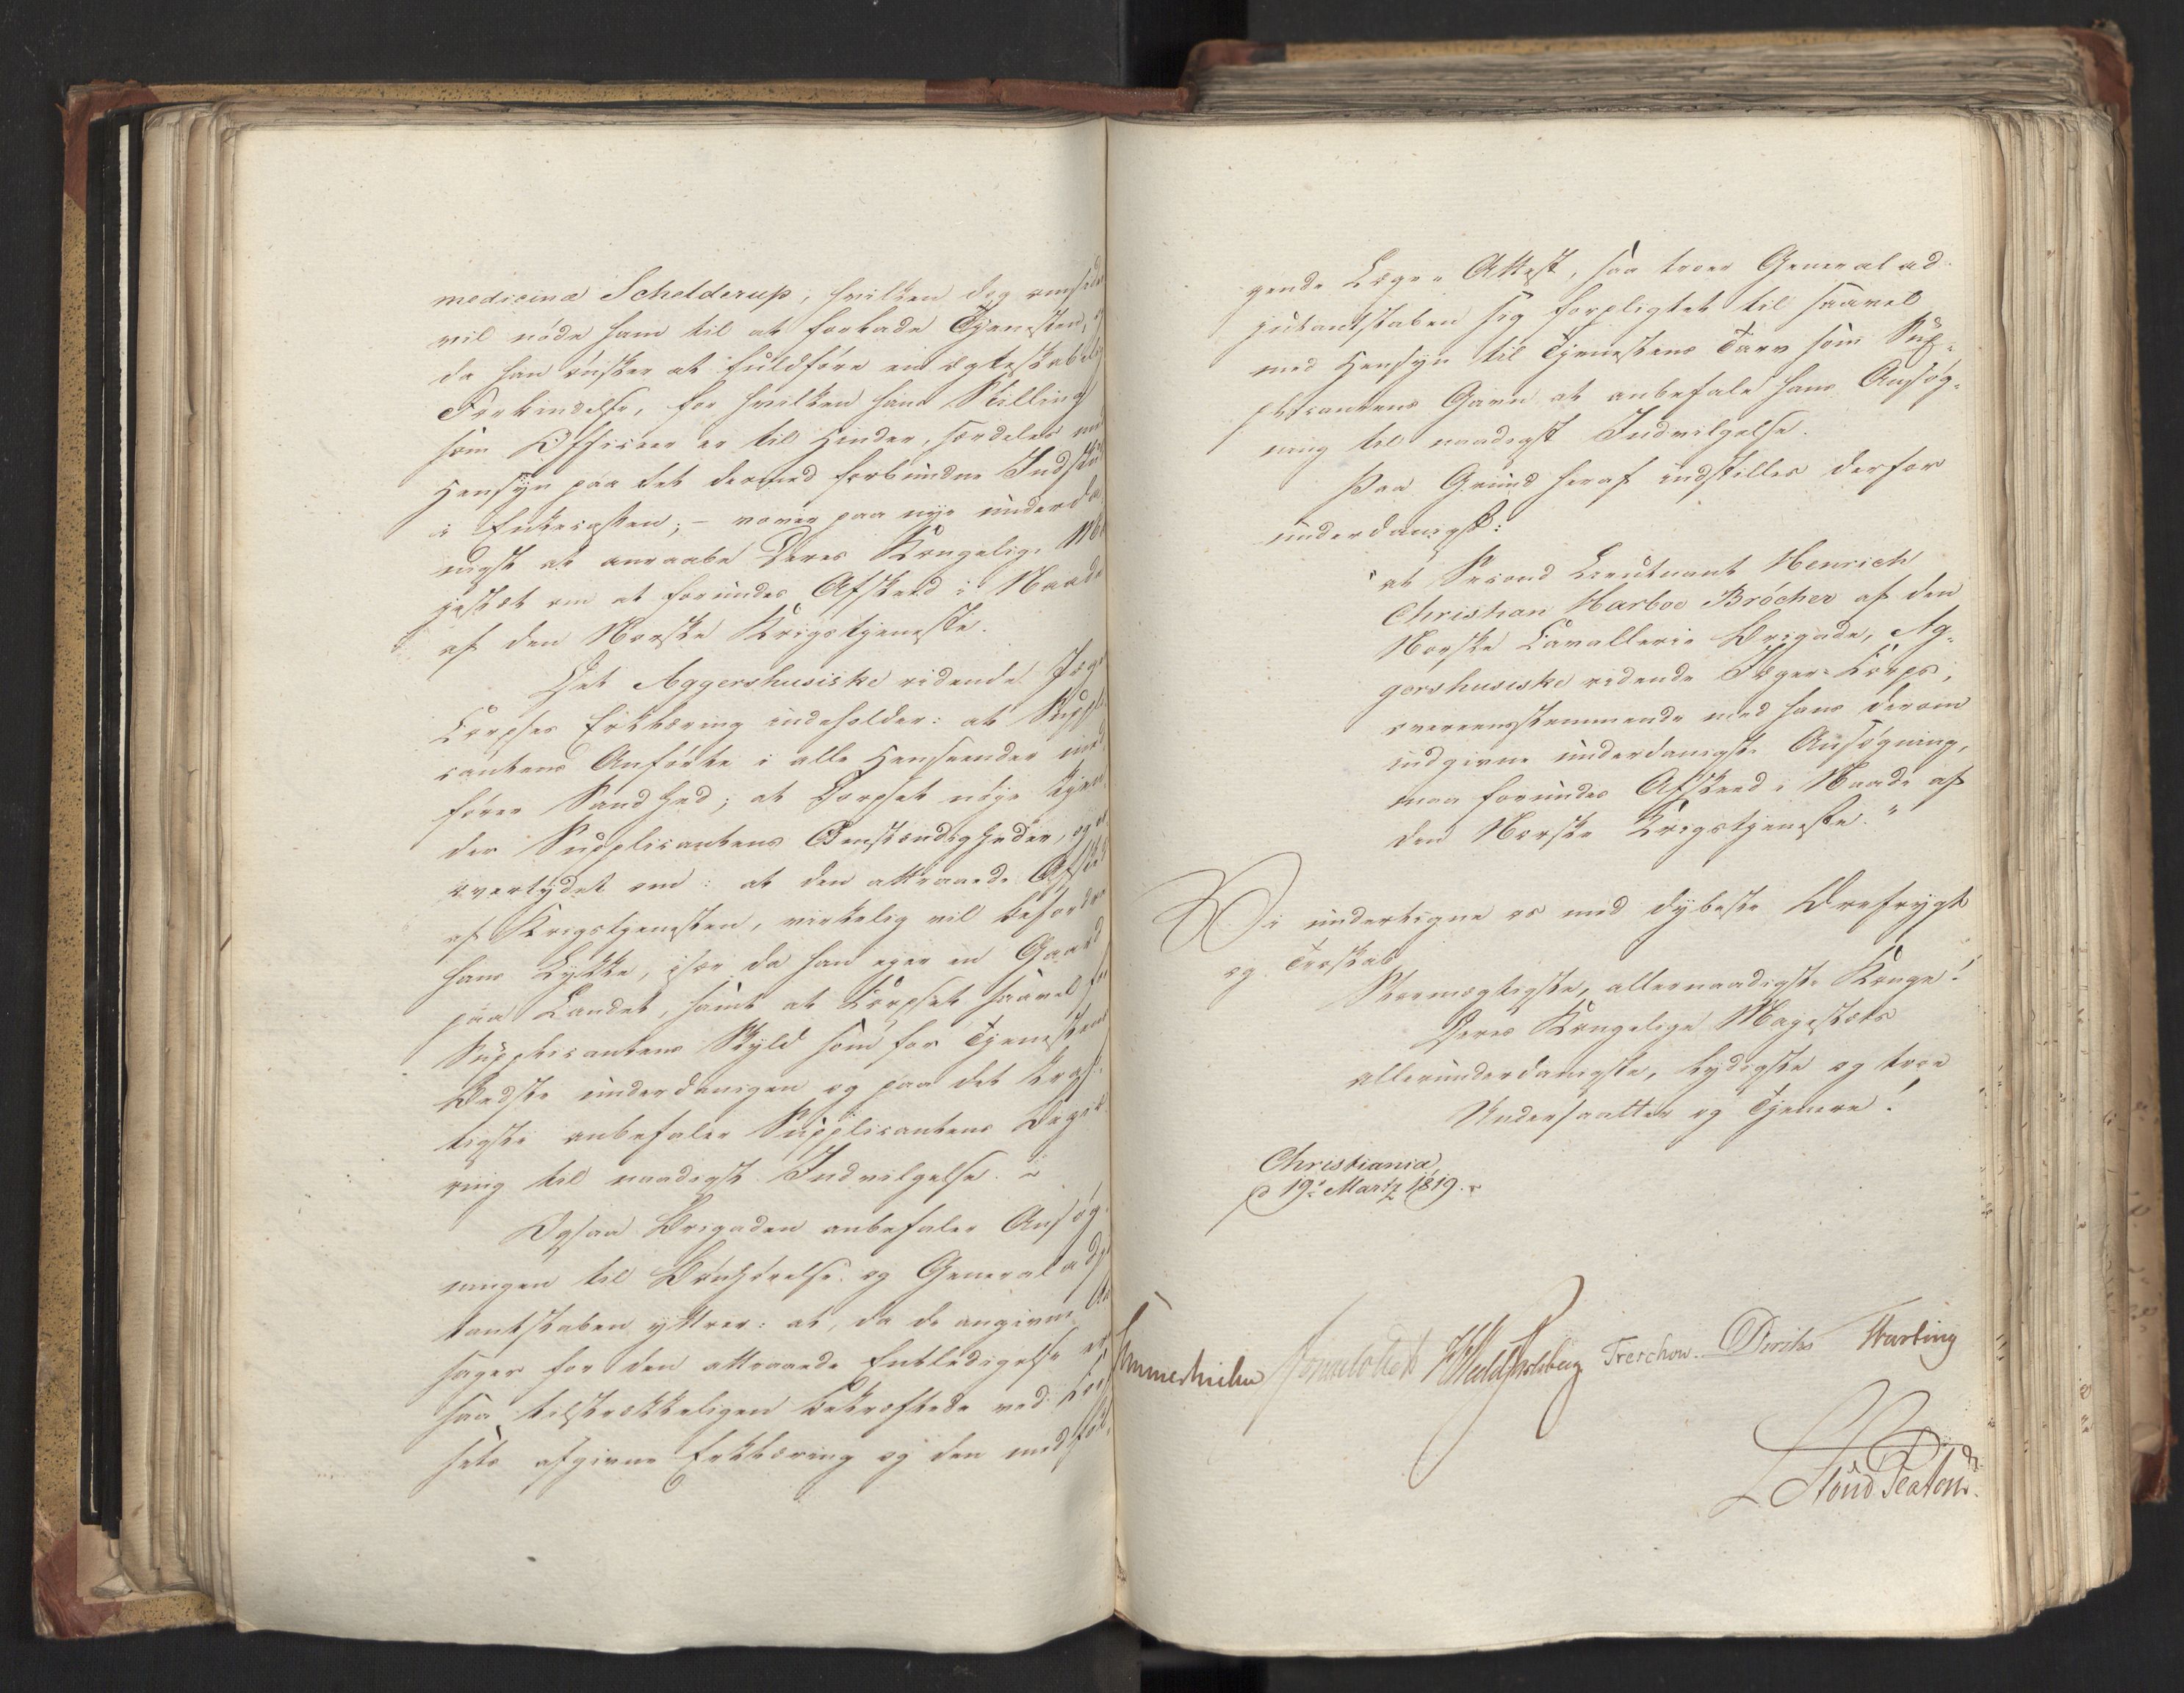 medicinæ Schelderup, hvilken dog omsider
vil nöde ham til at forlade Tjenesten, og
da han önsker at fuldföre en ægteskabelig
Forbindelse, for hvilken hans Stilling
som Officeer er til Hinder, særdeles med
Hensyn paa det dermed forbundne Indskud
i Enkecassen; – vover paa nye underda
nigst at anraabe Deres Kongelige Ma
jestæt om at forundes Afskeed i Naade
af den Norske Krigstjeneste.
Det Aggershusiske ridende Jæger
Corpses Erklæring indeholder: at Suppli
cantens Anförte i alle Henseender med
förer Sandhed; at Corpset nöje kjen
der Supplicantens Omstændigheder, og er
overtydet om: at den attraaede Afskeed
af Krigstjenesten, virkelig vil befordre
hans Lykke, især da han eger en Gaard
paa Landet, samt at Corpset saavel for
Supplicantens Skyld som for Tjenestens
Bedste underdanigen og paa det kraf
tigste anbefaler Supplicantens Begjæ
ring til naadigst Indvilgelse.
Ogsaa Brigaden anbefaler Ansög
ningen til Bönhörelse, og Generaladju
tantstaben yttrer: at, da de angivne Aar
sager for den attraaede Entledigelse ere
saa tilstrækkeligen bekræftede ved Corp
sets afgivne Erklæring og den medföl
gende Læge-Attest, saa troer Generalad
jutantstaben sig forpligtet til saavel
med Hensyn til Tjenestens Tarv som Sup-
plicantens Gavn at anbefale hans Ansög-
ning til naadigst Indvilgelse.
Paa Grund heraf indstilles derfor
underdanigst:
"at Second Lieutnant Henrich
Christian Harboe Bröcher af den
Norske Cavallerie Brigade, Ag-
gershusiske ridende Jæger-Corps,
overeensstemmende med hans derom
indgivne underdanigste Ansögning,
maa forundes Afskeed i Naade af
den Norske Krigstjeneste."
Vi undertegne os med dybeste Ærefrygt
og Troskab
Stormægtigste, allernaadigste Konge!
Deres Kongelige Majestæts
allerunderdanigste, lydigste og troe
Undersaatter og Tjenere!
Christiania,
d 19de Martz 1819.
Sommerhielm Treschow. Diriks Wasting